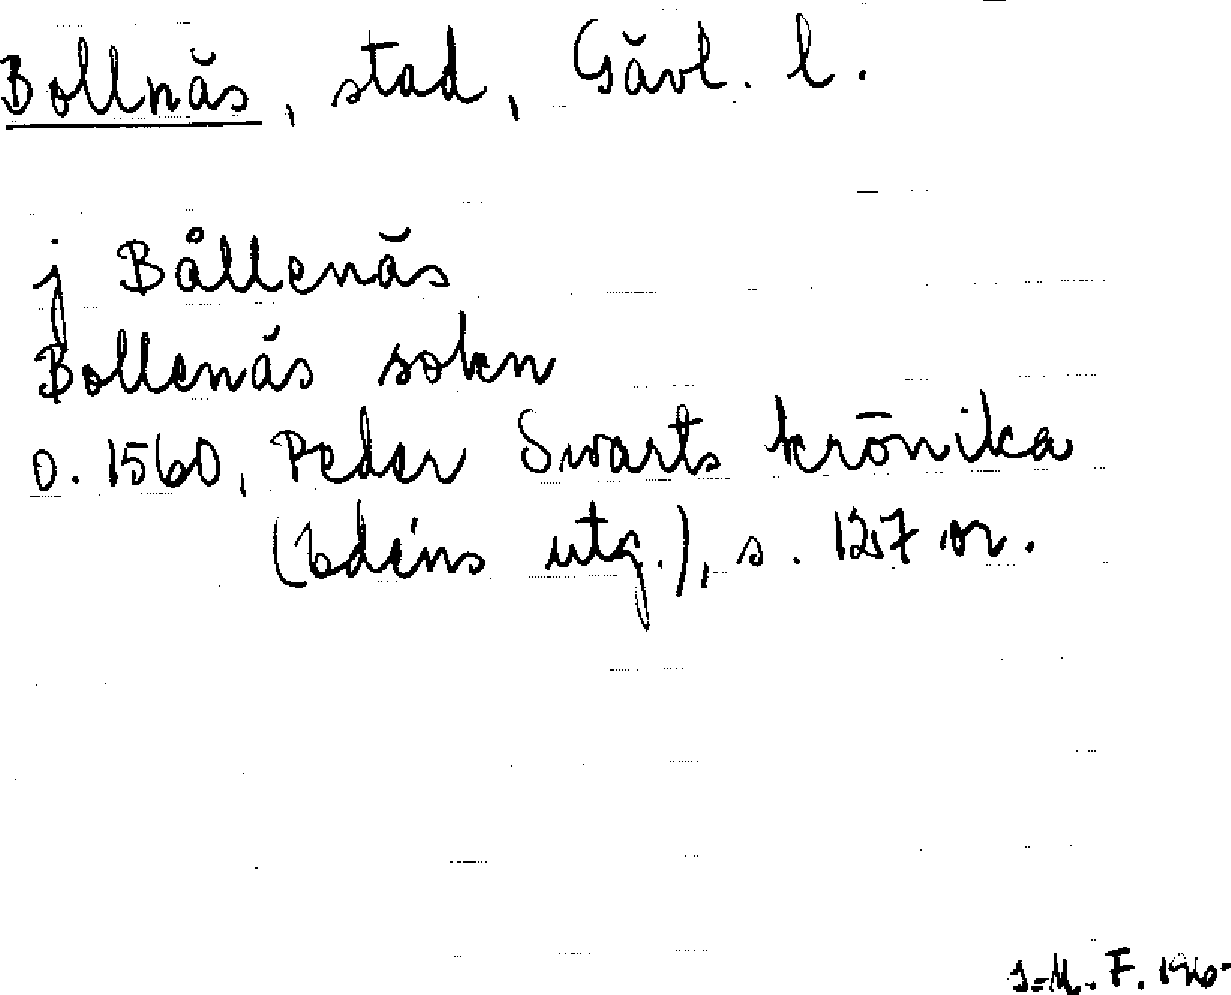 Bollnäs, stad, Gävl. l.
j Bållenäs
Bollenäs soken
o. 1560, Peder Swarts krönika
(Edéns utg.), s. 127 or.